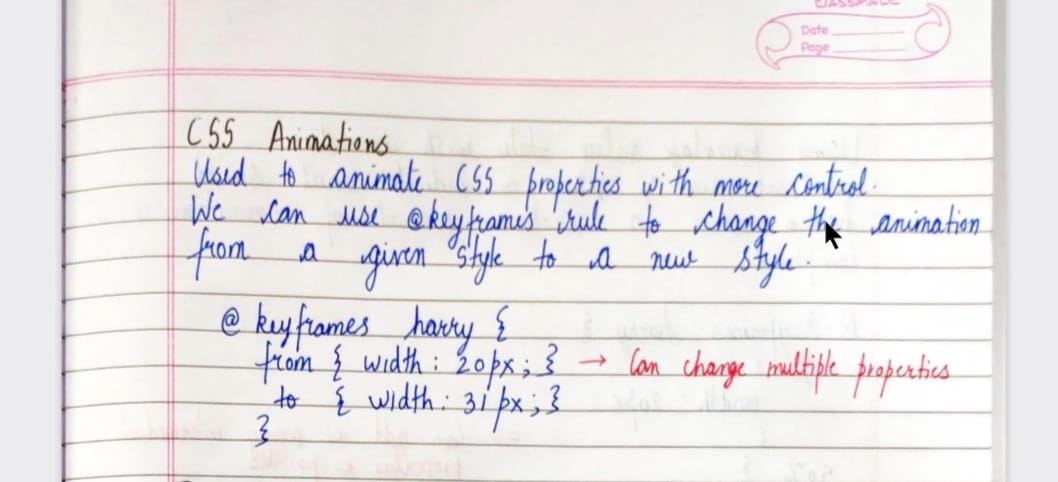 CLASSMATE
Date
Page
CSS Animations
Used to animate CSS properties with more control.
We can use @keyframes rule to change the animation
from a given style to a new style.
@ keyframes harry {
from { width : 20px ; } → Can change multiple properties
to { width : 31px ; }
}